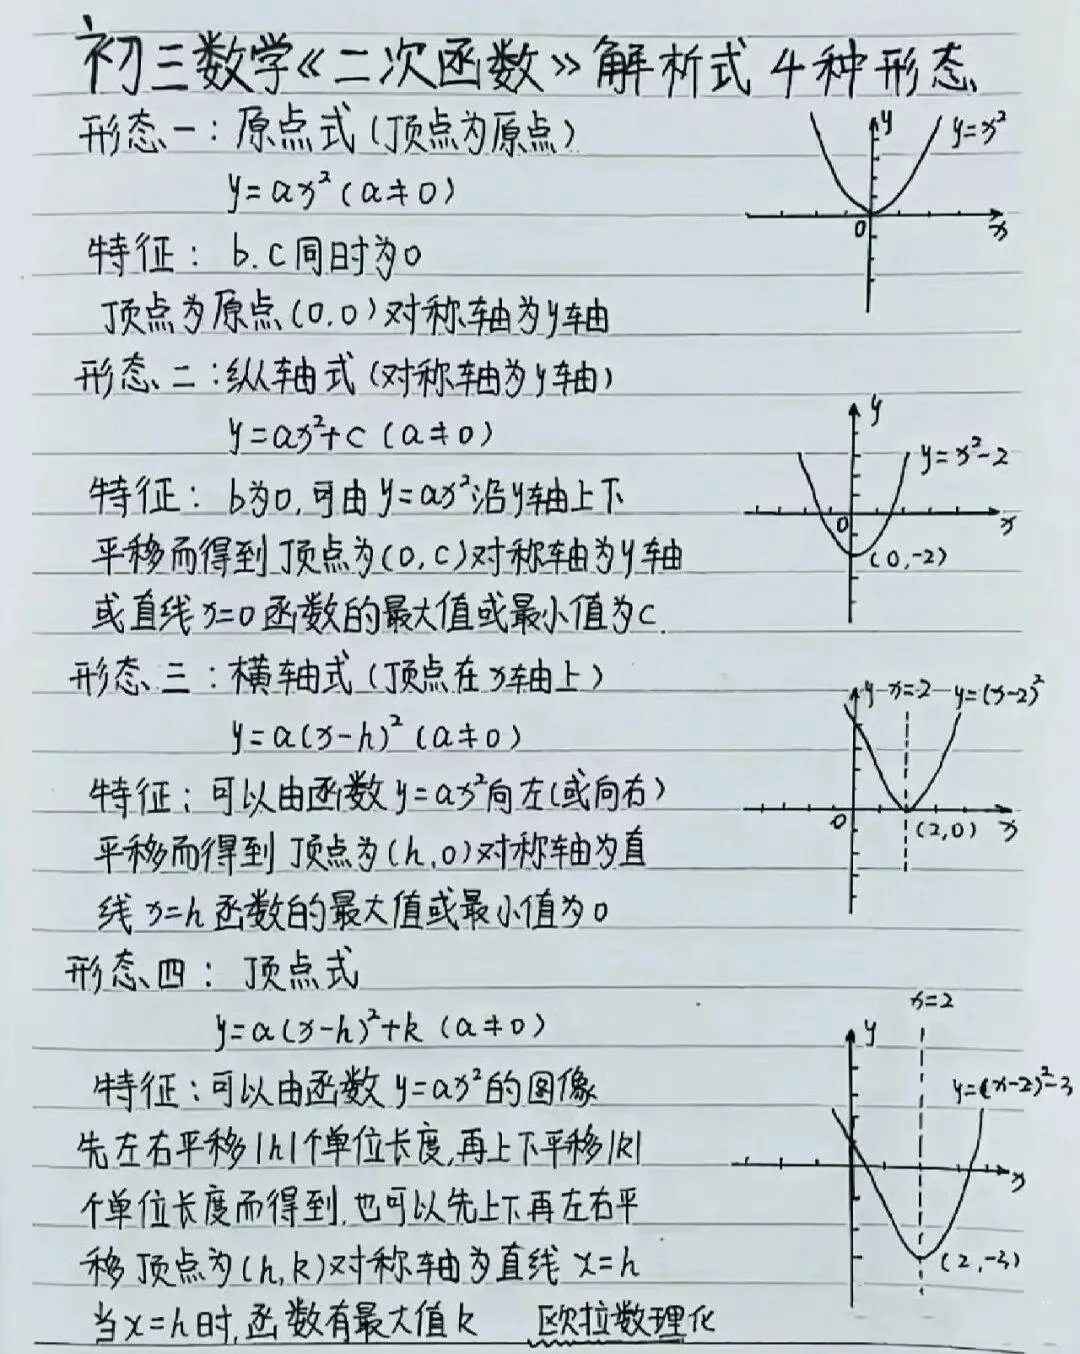 初三数学《二次函数》解析式4种形态
形态一：原点式(顶点为原点)
y=ax²(a≠0)
特征：b.c同时为0
顶点为原点(0.0)对称轴为y轴
y
y=x²
0
x
形态二：纵轴式(对称轴为y轴)
y=ax²+c(a≠0)
特征：b为0,可由y=ax²沿y轴上下
平移而得到顶点为(0,c)对称轴为y轴
或直线x=0函数的最大值或最小值为c.
y
y=x²-2
0
x
(0,-2)
形态三：横轴式(顶点在x轴上)
y=a(x-h)²(a≠0)
特征：可以由函数y=ax²向左(或向右)
平移而得到顶点为(h,0)对称轴为直
线x=h函数的最大值或最小值为0
y
x=2
y=(x-2)²
0
(2,0)
x
形态四：顶点式
y=a(x-h)²+k(a≠0)
特征：可以由函数y=ax²的图像
先左右平移|h|个单位长度,再上下平移|k|
个单位长度而得到,也可以先上下再左右平
移顶点为(h,k)对称轴为直线x=h
当x=h时,函数有最大值k
欧拉数理化
x=2
y
y=(x-2)²-3
x
(2,-3)